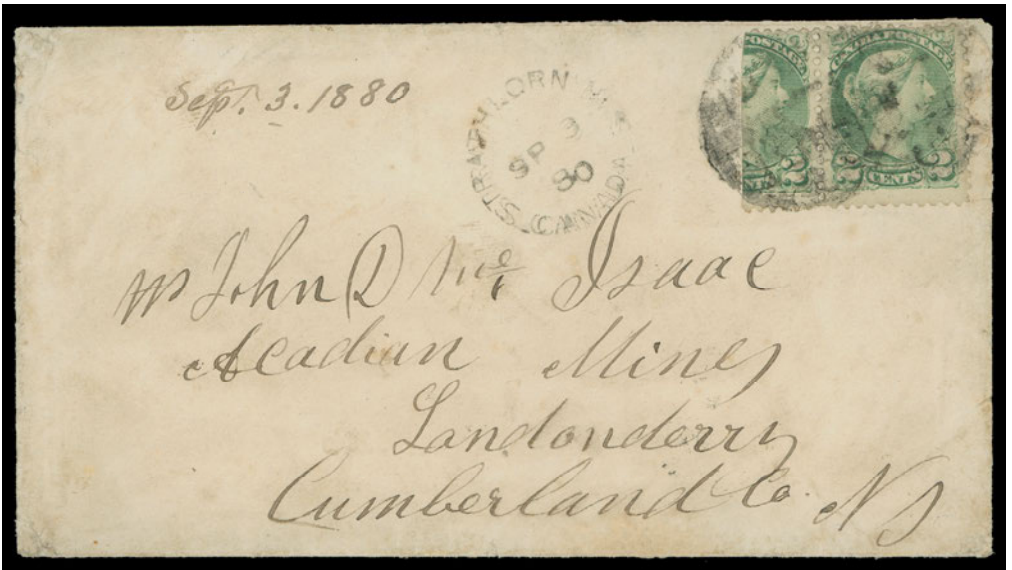 Sept. 3. 1880
STRATHLORN
SP 3
80
CANADA
POSTAGE
2
CANADA POSTAGE
2 CENTS 2
John D Mc Isaac
Acadian Mines
Londonderry
Cumberland Co. NS